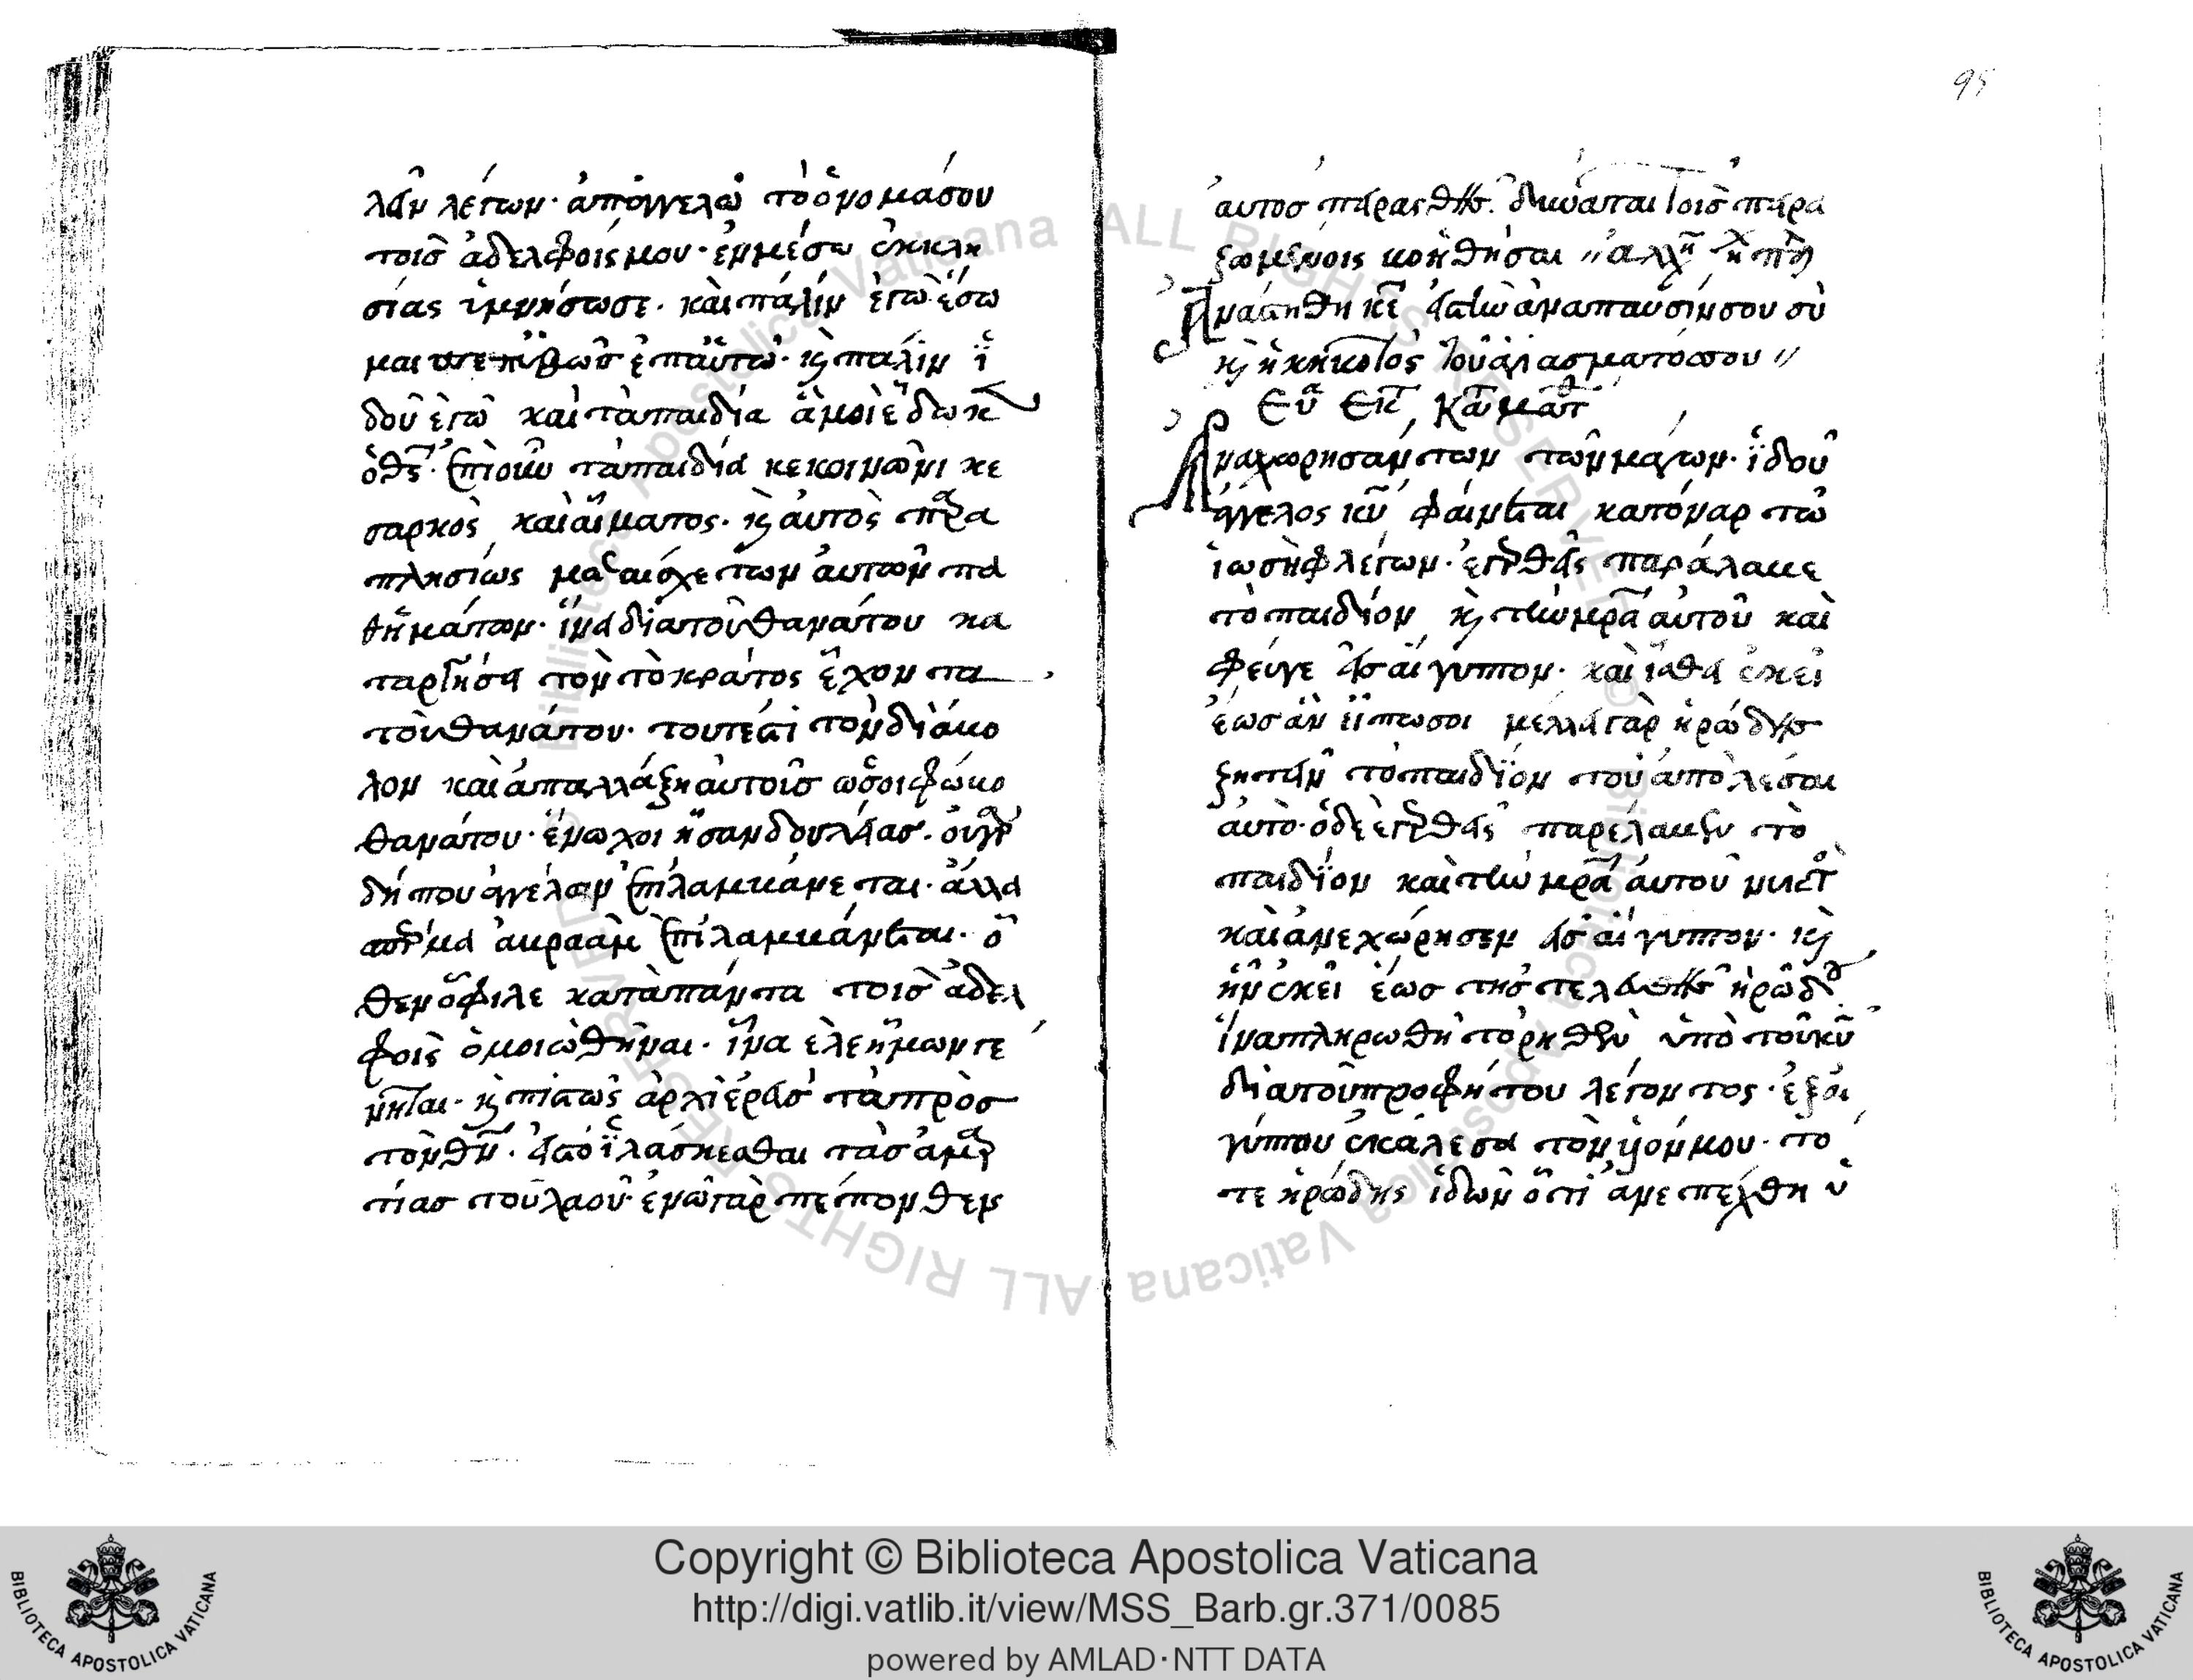 λεῖν λέγων· ἀπαγγελῶ τὸ ὄνομά σου
τοῖς ἀδελφοῖς μου· ἐν μέσω ἐκκλη
σίας ὑμνήσω σε· καὶ πάλιν ἐγὼ ἔσω
μαι πεπηθὼς ἐπ αὐτῶ· κ(αὶ) πάλιν ἰ
δοῦ ἐγὼ καὶ τὰ παιδία ἅ μοι ἔδωκ
ὁ θς· ἐπὶ οὖν τὰ παιδία κεκοινώνικε
σαρκὸς καὶ αἵματος· κ(αὶ) αὐτὸς παρα
πλησίως μετέσχε τῶν αὐτῶν πα
θημάτων· ἵνα διὰ τοῦ θανάτου κα
ταργήση τὸν τὸ κράτος ἔχοντα
τοῦ θανάτου· τουτέστι τὸν διάβο
λον καὶ ἀπαλλάξη αὐτοὺς ὅσοι φόβω
θανάτου· ἔνωχοι ἦσαν δουλείας· οὐ γὰρ
δήπου ἀγγέλων ἐπιλαμβάνεται· ἀλλὰ
σπέρμα ἀβραὰμ ἐπιλαμβάνεται· ὅ
θεν ὄφιλε κατὰ πάντα τοῖς ἀδελ
φοῖς ὁμοιωθῆναι· ἵνα ἐλεήμων γέ
νηται· κ(αὶ) πιστὼς ἀρχιερεὺς τὰ πρὸς
τὸν θν· εἰς τὸ ἱλάσκεσθαι τὰς ἁμαρ
τίας τοῦ λαοῦ· ἐν ὧ γὰρ πέπονθεν
95
αὐτὸς πειρασθεὶς· δύναται τοῖς πειρα
ζωμένοις βοηθῆσαι // ἀλλη
Ἀνάστηθη κε εἰς τὴν ἀνάπαυσίν σου σὺ
κ(αὶ) ἡ κηβωτὸς τοῦ ἁγιάσματός σου //
Εὐα Ἐκ Κατα Ματ
Ἀναχωρησάντων τῶν μάγων· ἰδοῦ
ἄγγελος κυ φαίνεται κατ ὄναρ τῶ
ἰωσὴφ λέγων· ἐγερθεὶς παράλαβε
τὸ παιδίον κ(αὶ) τὴν μρα αὐτοῦ καὶ
φεύγε εἰς αἴγυπτον· καὶ ἴσθι ἐκεῖ
ἕως ἂν εἴπω σοι μέλλει γὰρ ἡρώδης
ζητεῖν τὸ παιδίον τοῦ ἀπολέσαι
αὐτὸ· ὁ δὲ ἐγερθεὶς παρέλαβεν τὸ
παιδίον καὶ τὴν μρα αὐτοῦ νυκτὸς
καὶ ἀνεχώρησεν εἰς αἴγυπτον· κ(αὶ)
ἦν ἐκεῖ ἕως τῆς τελευτῆς ἡρώδου
ἵνα πληρωθῆ τὸ ρηθὲν ὑπὸ τοῦ κυ
διὰ τοῦ προφήτου λέγοντος· ἐξ αἰ
γύπτου ἐκάλεσα τὸν υἱόν μου· τό
τε ἡρώδης ἰδὼν ὅτι ἀνεπέχθη ὑ
Copyright © Biblioteca Apostolica Vaticana
http://digi.vatlib.it/view/MSS_Barb.gr.371/0085
powered by AMLAD·NTT DATA